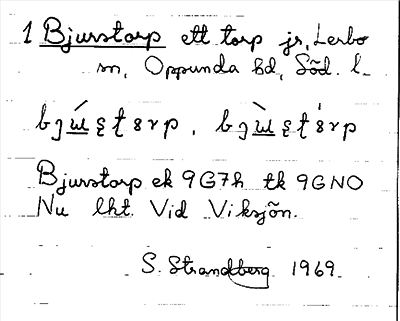 1 Bjurstorp ett torp jr, Lerbo
sn, Oppunda hd, Söd. l.
Bjurstorp ek 9G7h tk 9GNO
Nu lht. Vid Viksjön.
S. Strandberg 1969.